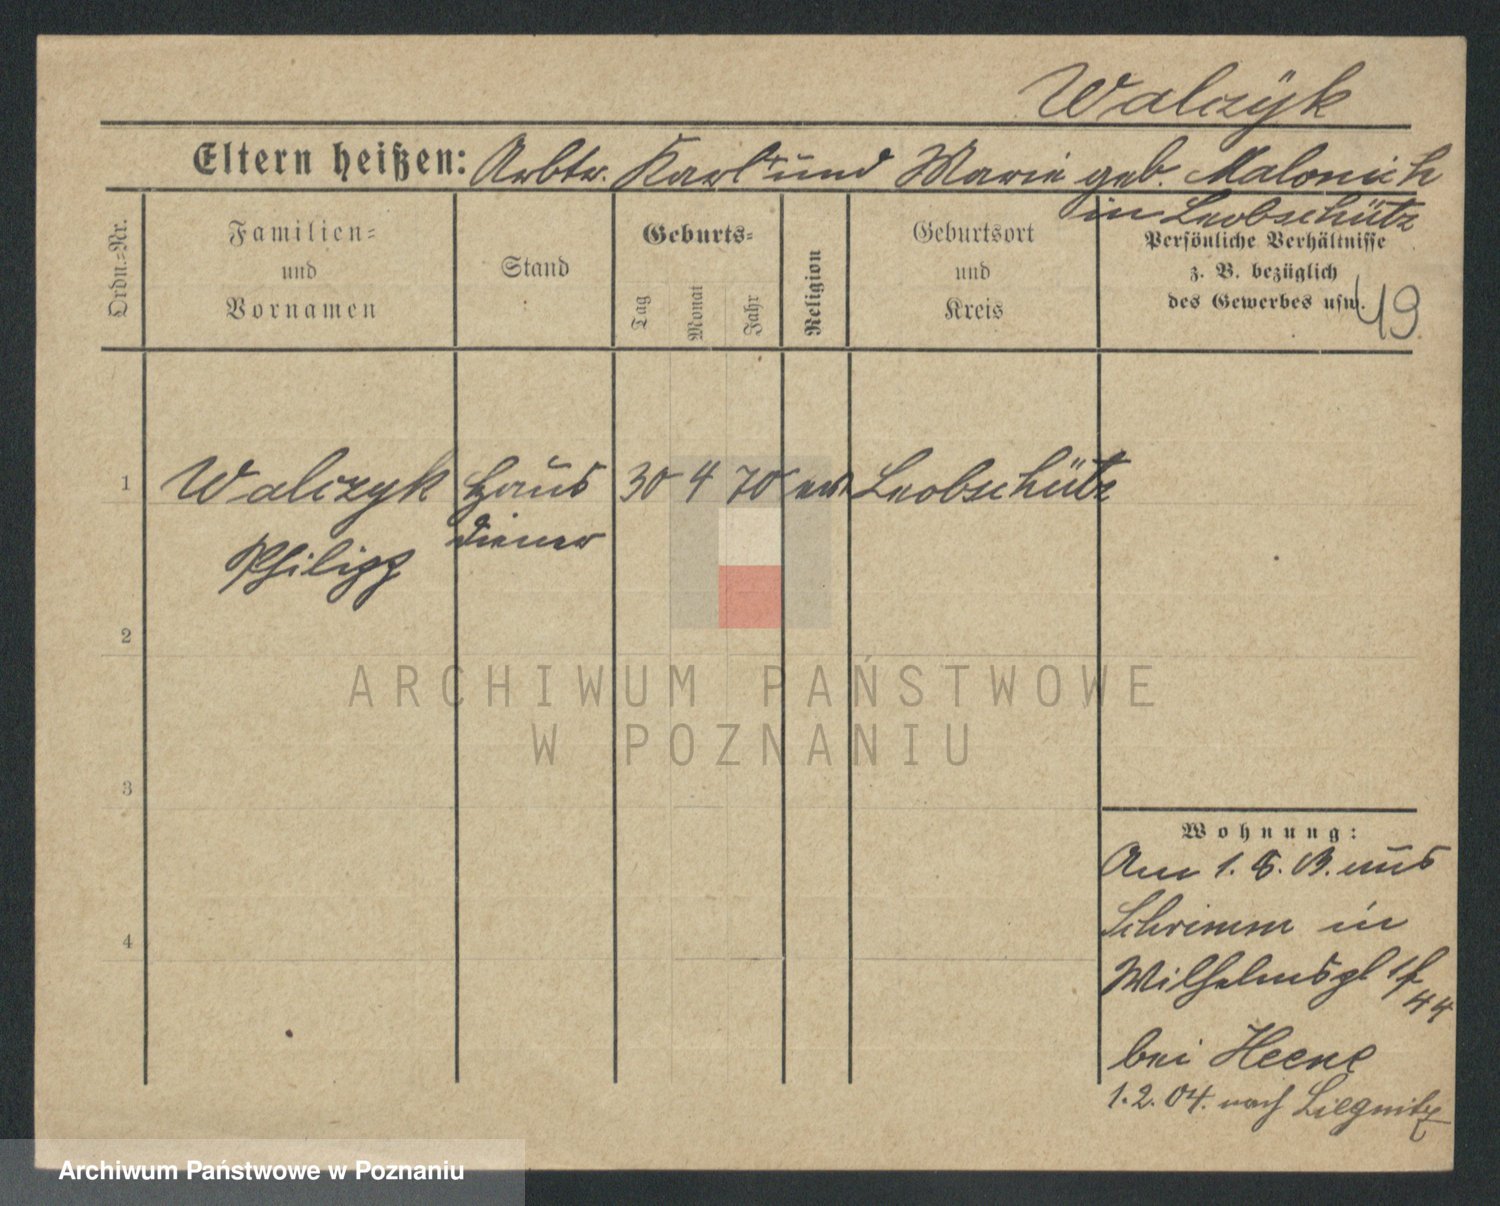 Walczÿk
Eltern heißen: Arbtr. Karl + und Marie geb. Malonich
in Leobschütz
Ordn.-Nr.
Familien-
und
Vornamen
Stand
Geburts-
Tag
Monat
Jahr
Religion
Geburtsort
und
Kreis
Persönliche Verhältnisse
z. B. bezüglich
des Gewerbes usw.
49
1 Walczyk Haus 30 4 70 Leobschütz
Philipp diener
2
ARCHIWUM PAŃSTWOWE
W POZNANIU
3
Wohnung:
Am 1. 8. 03. aus
Schrimm in
4
Wilhelmspl
bei Heene
1. 2. 04. nach Liegnitz
Archiwum Państwowe w Poznaniu